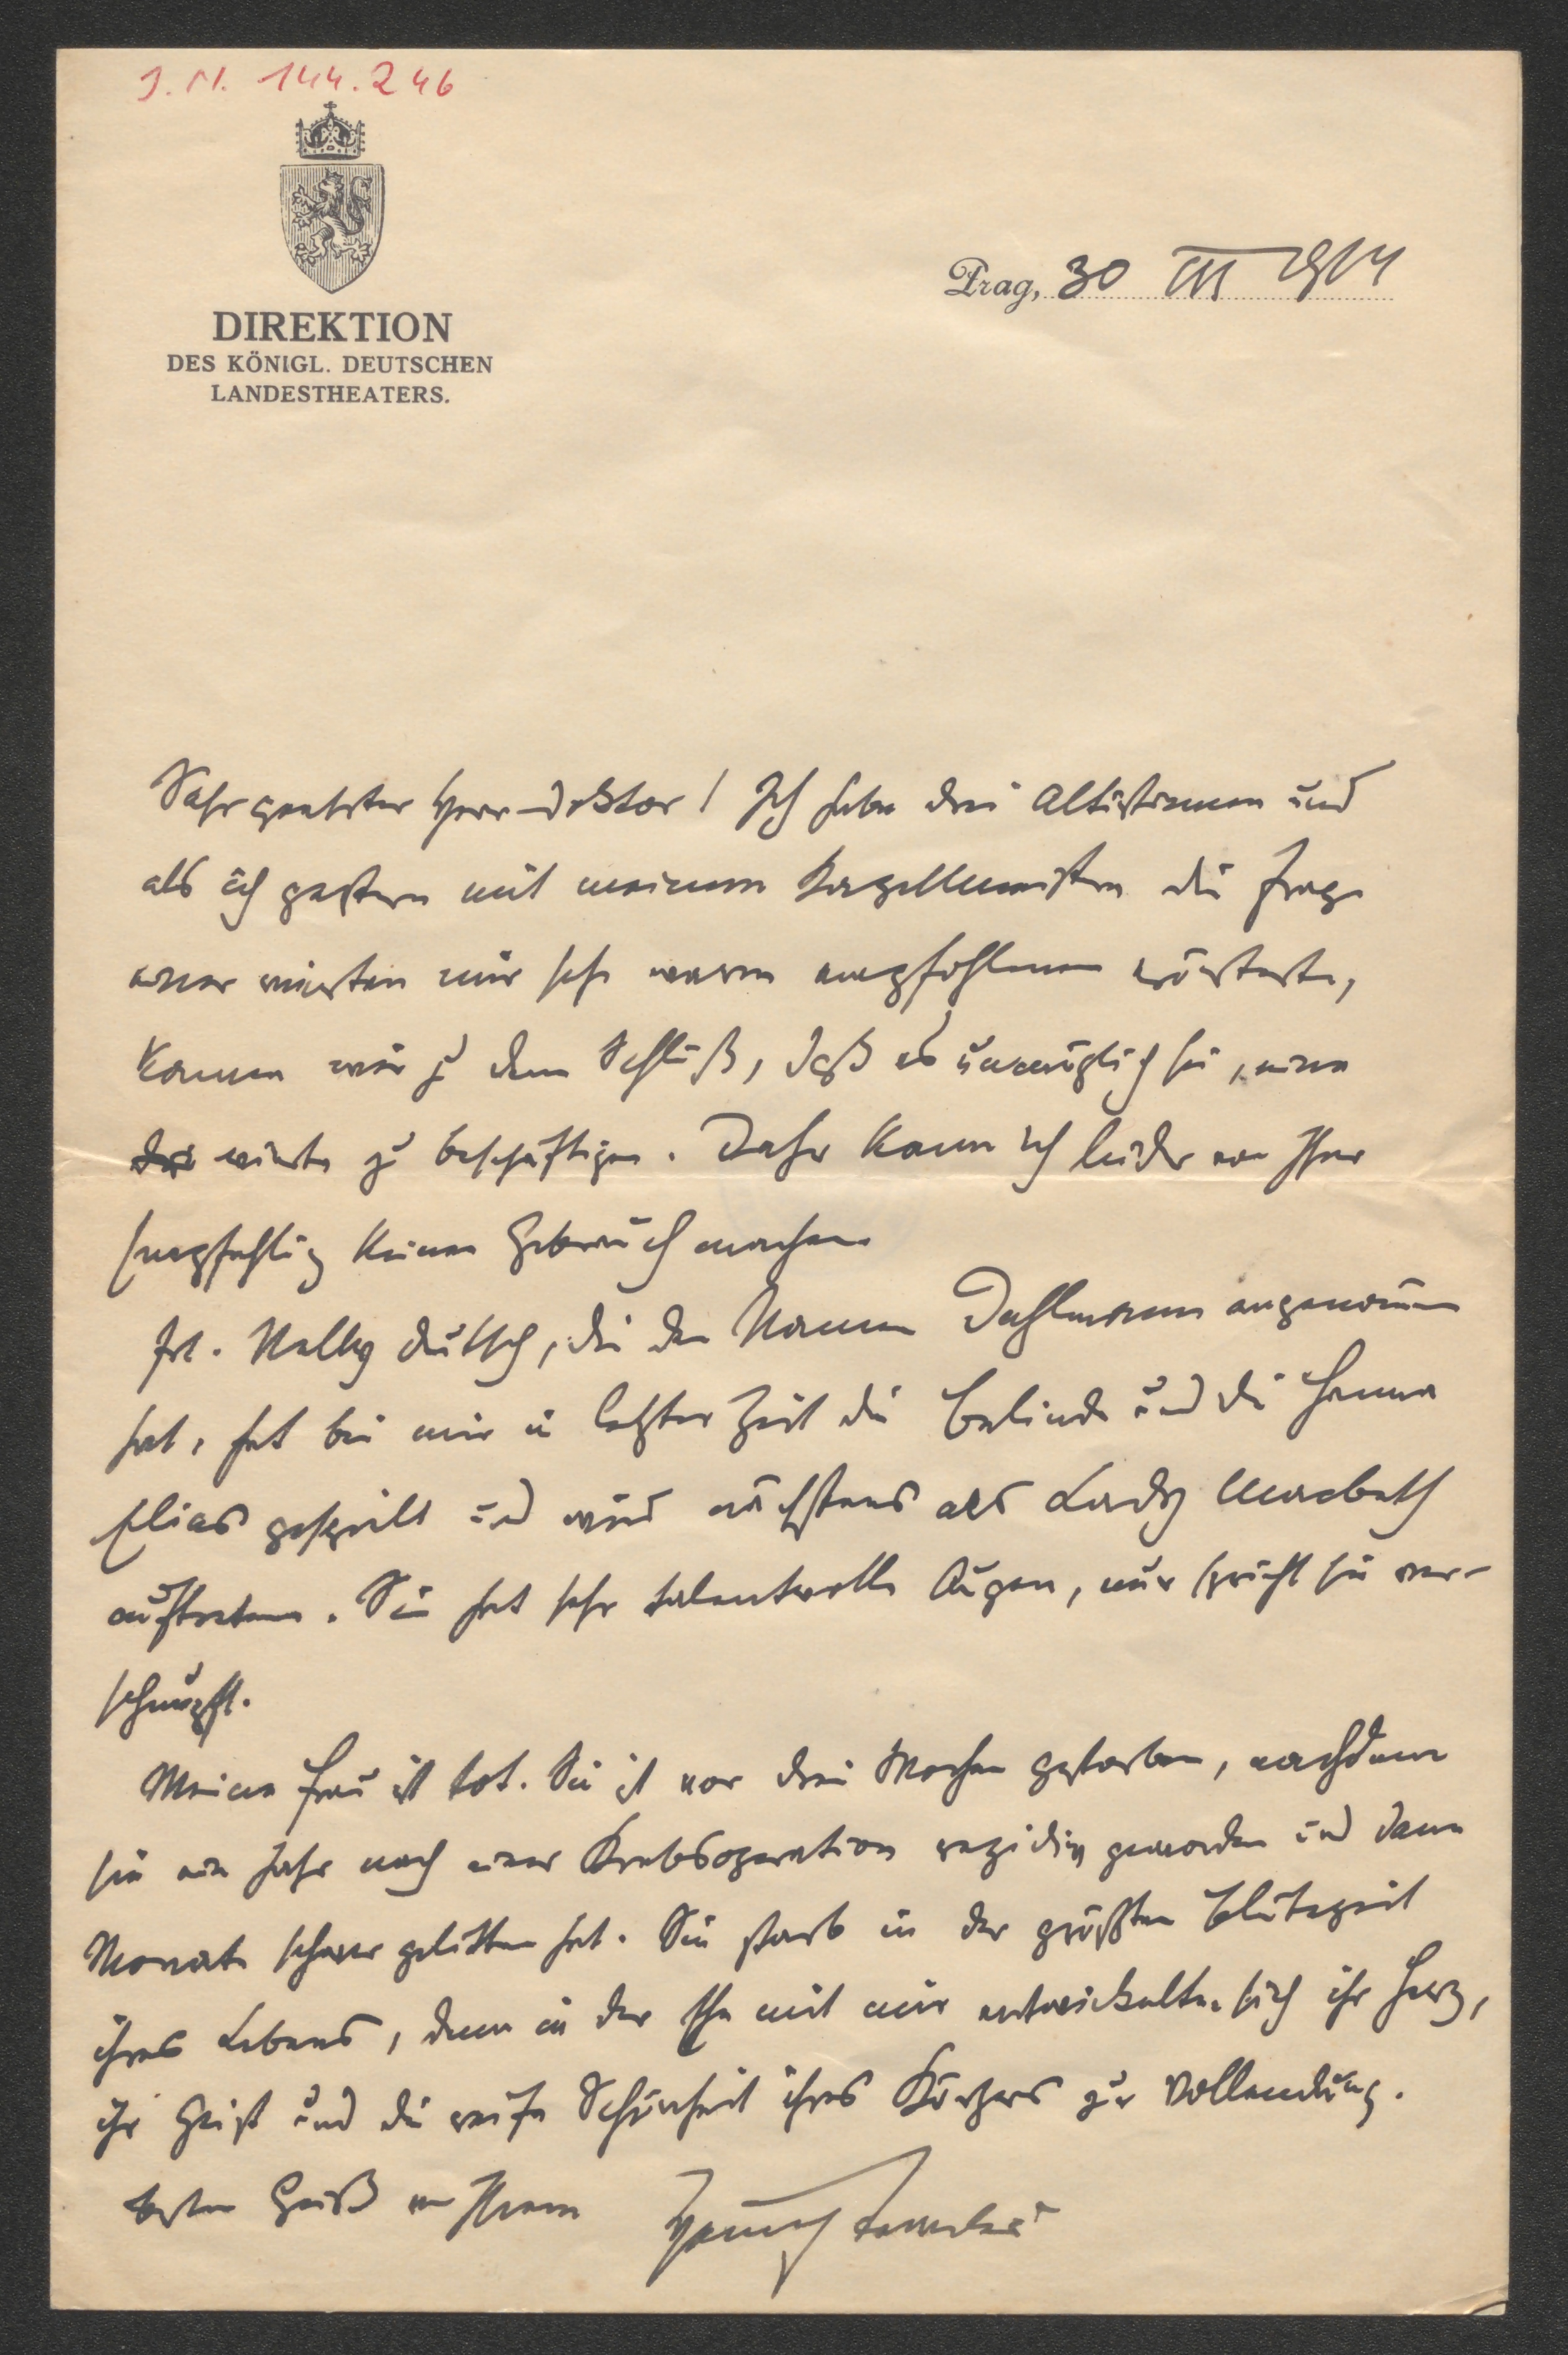 J.N. 144.246
DIREKTION
DES KÖNIGL. DEUTSCHEN
LANDESTHEATERS.
Prag, 30 III 1914
Sehr geehrter Herr Doktor! Ich habe drei Altistinnen und
als ich gestern mit meinem Kapellmeister die Frage
einer vierten mir sehr warm empfohlenen erörterte,
kamen wir zu dem Schluß, daß es unmöglich sei, eine
vierte zu beschäftigen. Daher kann ich leider von Ihrer
Empfehlung keinen Gebrauch machen.
Frl. Nelly Deutsch, die den Namen Dahlmann angenommen
hat, hat bei mir in letzter Zeit die Belinde und die Hanna
Elias gespielt und wird nächstens als Lady Macbeth
auftreten. Sie hat sehr talentvolle Augen, nur spricht sie ver-
schnupft.
Meine Frau ist tot. Sie ist vor drei Wochen gestorben, nachdem
sie ein Jahr nach einer Krebsoperation rezidiv geworden und dann
Monate schwer gelitten hat. Sie starb in der größten Blütezeit
ihres Lebens, denn in der Ehe mit mir entwickelten sich ihr Herz,
ihr Geist und die reife Schönheit ihres Körpers zur Vollendung.
Besten Gruß von Ihrem Heinrich Teweles